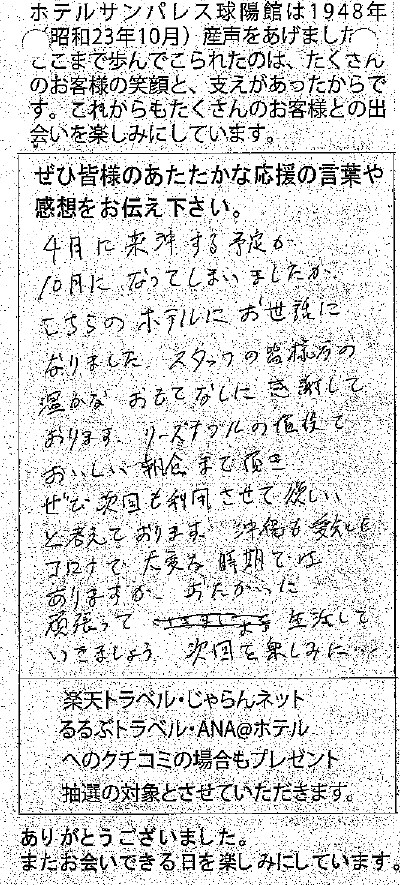 ホテルサンパレス球陽館は1948年
(昭和23年10月）産声をあげました
ここまで歩んでこられたのは、たくさん
のお客様の笑顔と、支えがあったからで
す。これからもたくさんのお客様との出
会いを楽しみにしています。
ぜひ皆様のあたたかな応援の言葉や
感想をお伝え下さい。
4月に来沖する予定が
10月になってしまいましたが
こちらのホテルにお世話に
なりました。スタッフの皆様方の
温かなおもてなしに感謝して
おります。リーズナブルの値段で
おいしい朝食まで頂き
ぜひ次回も利用させて欲しい
と考えております。沖縄も
コロナで大変な時期では
ありますが、おたがいに
頑張って 生活して
いきましょう。次回を楽しみに…
楽天トラベル・じゃらんネット
るるぶトラベル・ANA@ホテル
へのクチコミの場合もプレゼント
抽選の対象とさせていただきます。
ありがとうございました。
またお会いできる日を楽しみにしています。